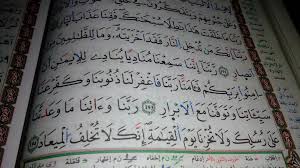 سُبْحَٰنَكَ فَقِنَا عَذَابَ
رَبَّنَآ إِنَّكَ مَن تُدْخِلِ النَّارَ فَقَدْ أَخْزَيْتَهُۥ وَمَا لِلظَّٰلِمِينَ مِنْ
أَنصَارٍ رَّبَّنَآ إِنَّنَا سَمِعْنَا مُنَادِيًا يُنَادِى لِلْإِيمَٰنِ
أَنْ ءَامِنُوا۟ بِرَبِّكُمْ فَـَٔامَنَّا رَبَّنَا فَاغْفِرْ لَنَا ذُنُوبَنَا وَكَفِّرْ عَنَّا
سَيِّـَٔاتِنَا وَتَوَفَّنَا مَعَ الْأَبْرَارِ ﴿١٩٣﴾ رَبَّنَا وَءَاتِنَا مَا وَعَدتَّنَا
عَلَىٰ رُسُلِكَ وَلَا تُخْزِنَا يَوْمَ الْقِيَٰمَةِ إِنَّكَ لَا تُخْلِفُ الْمِيعَادَ ﴿١٩٤﴾